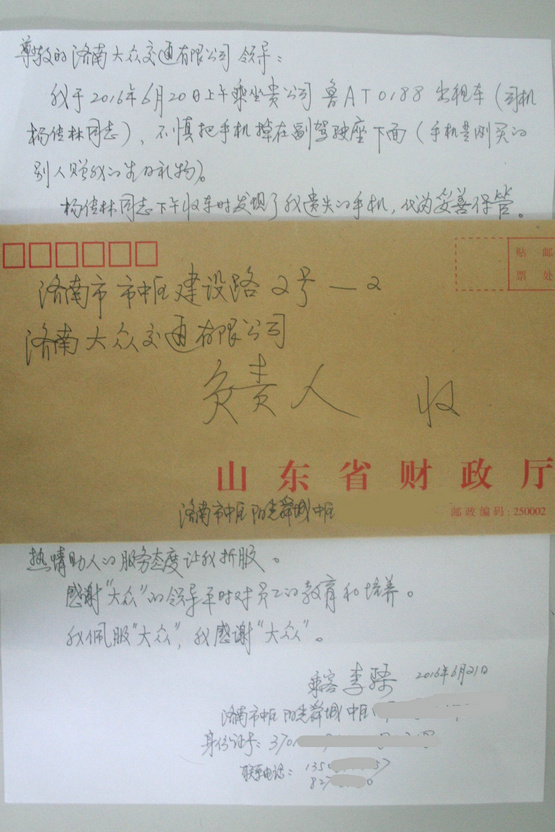 尊敬的济南大众交通有限公司领导:
我于2016年6月20日上午乘坐贵公司鲁AT0188出租车(司机
杨佳林同志),不慎把手机掉在副驾驶座下面(手机是刚买的
别人赠我的生日礼物)。
杨佳林同志下午收车时发现了我遗失的手机,代为妥善保管。
贴 邮
票 处
济南市市中区建设路2号—2
济南大众交通有限公司
负责人 收
山东省财政厅
济南市中区阳光舜城中区
邮政编码:250002
热情助人的服务态度让我折服。
感谢“大众”的领导平时对员工的教育和培养。
我佩服“大众”,我感谢“大众”。
乘客 李 2016年6月21日
济南市中区阳光舜城中区
身份证号:3701
联系电话:1350 57
827 0